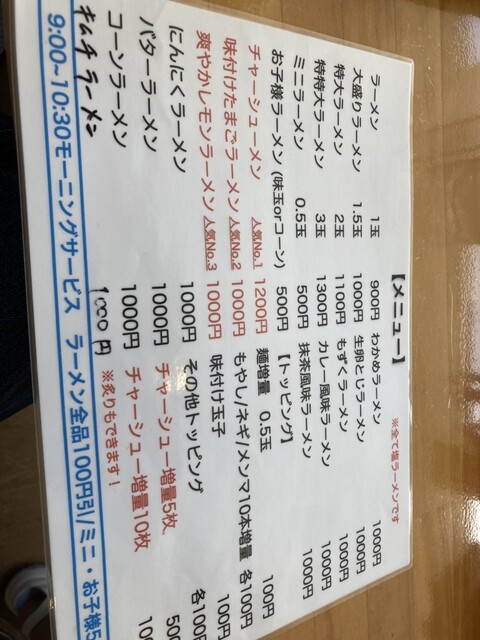 【メニュー】
※全て塩ラーメンです
ラーメン 1玉 900円 わかめラーメン 1000円
大盛りラーメン 1.5玉 1000円 生卵とじラーメン 1000円
特大ラーメン 2玉 1100円 もずくラーメン 1000円
特特大ラーメン 3玉 1300円 カレー風味ラーメン 1000円
ミニラーメン 0.5玉 500円 抹茶風味ラーメン 1000円
お子様ラーメン (味玉orコーン) 500円 【トッピング】
チャーシューメン 人気No.1 1200円 麺増量 0.5玉 100円
味付けたまごラーメン 人気No.2 1000円 もやし/ネギ/メンマ10本増量 各100円
爽やかレモンラーメン 人気No.3 1000円 味付け玉子 100円
にんにくラーメン 1000円 その他トッピング 各100
バターラーメン 1000円 チャーシュー増量5枚 500
コーンラーメン 1000円 チャーシュー増量10枚 100
キムチラーメン 1000円 ※炙りもできます！
9:00~10:30モーニングサービス ラーメン全品100円引/ミニ・お子様5